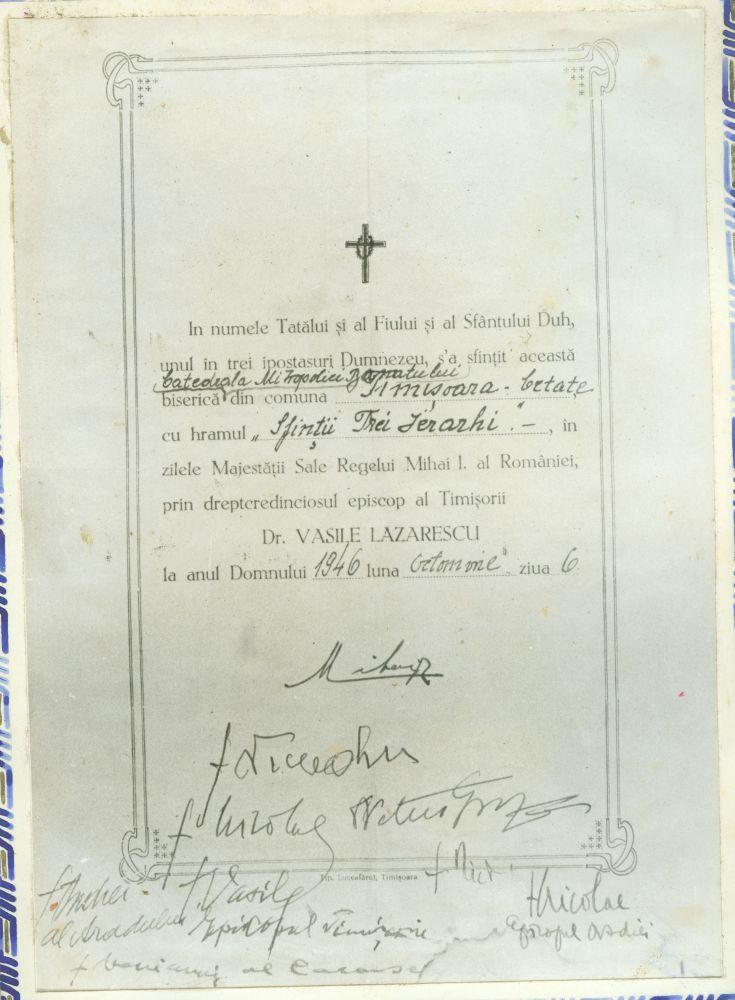 In numele Tatălui și al Fiului și al Sfântului Duh,
unul în trei ipostasuri Dumnezeu, s'a sfințit această
Catedrala Mitropoliei Banatului
biserică din comuna Timișoara - Cetate
cu hramul „Sfinții Trei Ierarhi". -, în
zilele Majestății Sale Regelui Mihai I. al României,
prin dreptcredinciosul episcop al Timișorii
Dr. VASILE LAZARESCU
la anul Domnului 1946 luna Octomvrie ziua 6
Mihai R
† Nicodim
† Nicolae Petru Groza
Tip. Luceafărul, Timișoara
† Andrei
al Aradului
† Vasile
Episcopul Timișorii
† Nicolae
Episcopul Oradiei
† Veniamin al Caransebeș